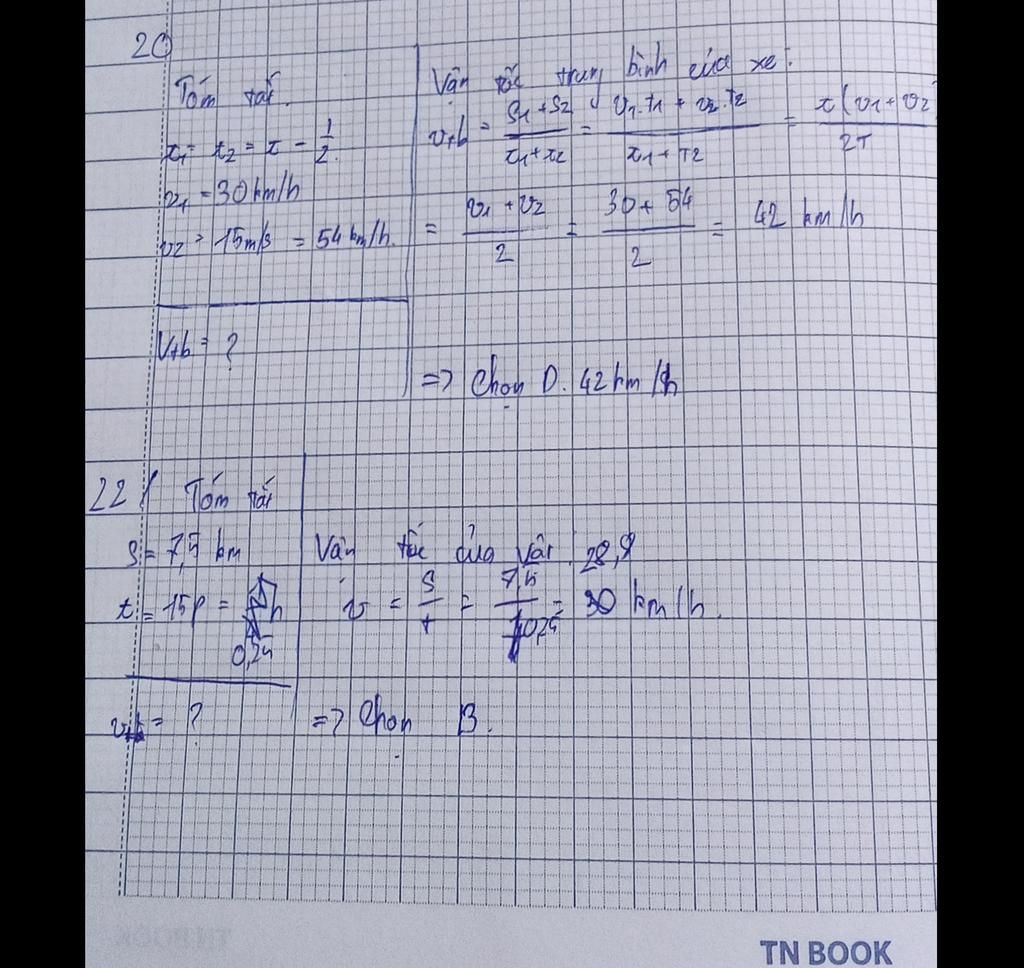 20
Tóm tắt
t1 = t2 = t = 1/2
v1 = 30 km/h
v2 = 15m/s = 54 km/h.
Vtb = ?
Vận tốc trung bình của xe:
vtb = (S1 + S2)/(t1 + t2) = (v1.t1 + v2.t2)/(t1 + t2) = t(v1 + v2)/2t
= (v1 + v2)/2 = (30 + 54)/2 = 42 km/h
=> Chọn D. 42 km/h
22/ Tóm tắt
S = 7,5 km
t = 15p = h
0,25
v = ?
Vận tốc của vật 28,8
v = S/t = 7,5/0,25 = 30 km/h.
=> Chọn B.
TN BOOK